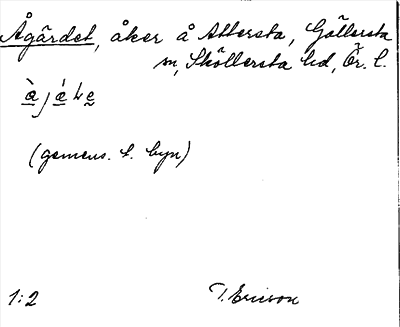 Ågärdet, åker å Attersta, Gällersta
sn, Sköllersta hd, Ör. l.
(gemens. f. byn)
1:2 T. Ericson